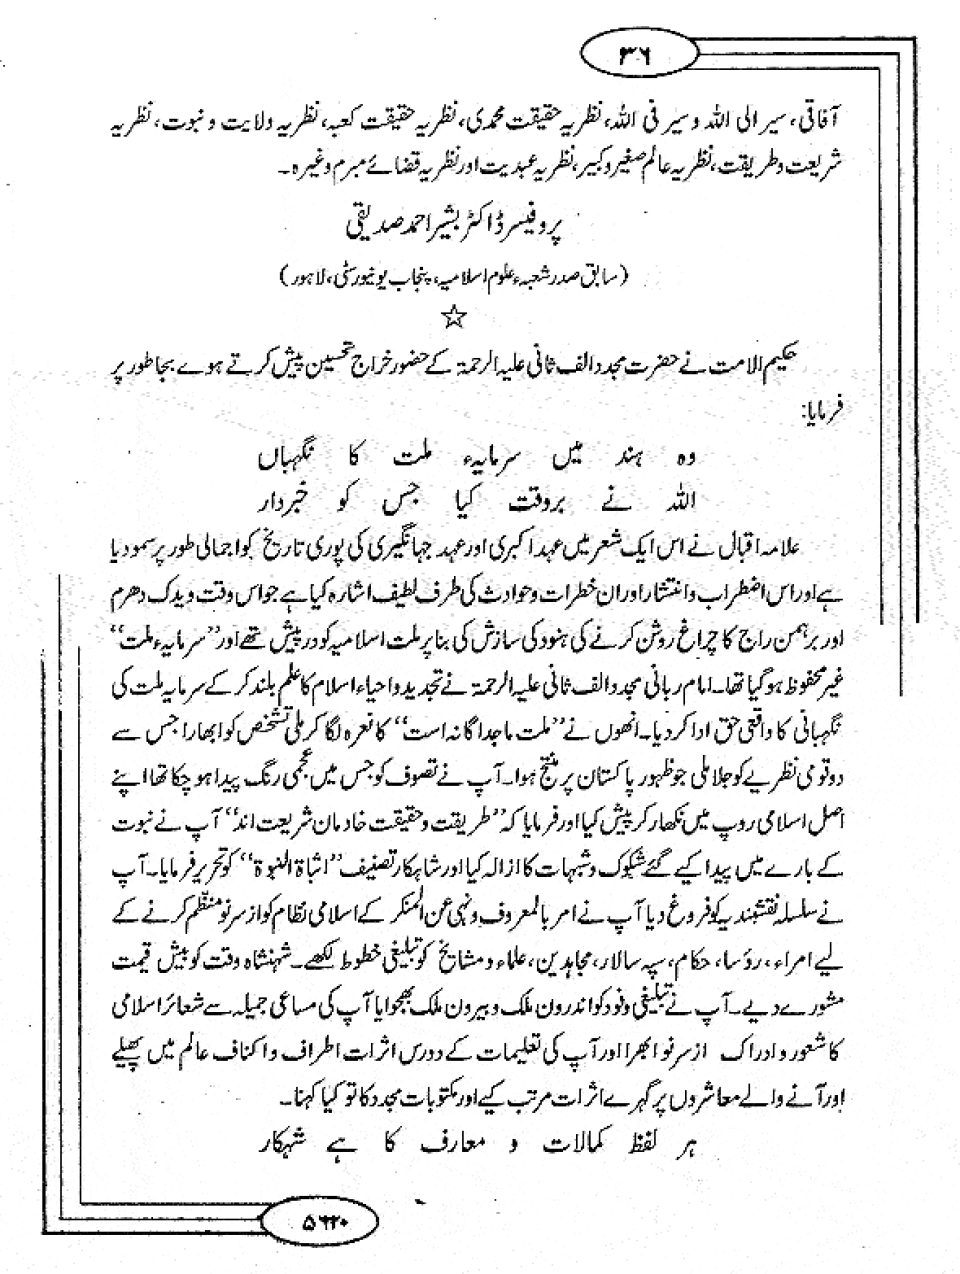 ۳۶
آفاقی، سیر الی اللہ و سیر فی اللہ، نظریہ حقیقت محمدی، نظریہ حقیقت کعبہ، نظریہ ولایت و نبوت، نظریہ
شریعت و طریقت، نظریہ عالم صغیر و کبیر، نظریہ عبدیت اور نظریہ قضائے مبرم وغیرہ۔
پروفیسر ڈاکٹر بشیر احمد صدیقی
(سابق صدر شعبہء علوم اسلامیہ، پنجاب یونیورسٹی، لاہور)
☆
حکیم الامت نے حضرت مجدد الف ثانی علیہ الرحمۃ کے حضور خراج تحسین پیش کرتے ہوے بجا طور پر
فرمایا:
وہ ہند میں سرمایہء ملت کا نگہباں
اللہ نے بروقت کیا جس کو خبردار
علامہ اقبال نے اس ایک شعر میں عہد اکبری اور عہد جہانگیری کی پوری تاریخ کو اجمالی طور پر سمو دیا
ہے اور اس اضطراب و انتشار اور ان خطرات و حوادث کی طرف لطیف اشارہ کیا ہے جو اس وقت ویدک دھرم
اور برہمن راج کا چراغ روشن کرنے کی ہنود کی سازش کی بنا پر ملت اسلامیہ کو درپیش تھے اور ”سرمایہء ملت“
غیر محفوظ ہو گیا تھا۔ امام ربانی مجدد الف ثانی علیہ الرحمۃ نے تجدید و احیاء اسلام کا علم بلند کر کے سرمایہ ملت کی
نگہبانی کا واقعی حق ادا کر دیا۔ انھوں نے ”ملت ما جداگانہ است“ کا نعرہ لگا کر ملی تشخص کو ابھارا جس سے
دو قومی نظریے کو جلا ملی جو ظہور پاکستان پر منتج ہوا۔ آپ نے تصوف کو جس میں عجمی رنگ پیدا ہو چکا تھا اپنے
اصل اسلامی روپ میں نکھار کر پیش کیا اور فرمایا کہ ”طریقت و حقیقت خادمان شریعت اند“ آپ نے نبوت
کے بارے میں پیدا کیے گئے شکوک و شبہات کا ازالہ کیا اور شاہکار تصنیف ”اثباۃ النبوۃ“ کو تحریر فرمایا۔ آپ
نے سلسلہ نقشبندیہ کو فروغ دیا آپ نے امر بالمعروف ونہی عن المنکر کے اسلامی نظام کو از سرنو منظم کرنے کے
لیے امراء، رؤسا، حکام، سپہ سالار، مجاہدین، علماء و مشایخ کو تبلیغی خطوط لکھے۔ شہنشاہ وقت کو بیش قیمت
مشورے دیے۔ آپ نے تبلیغی وفود کو اندرون ملک و بیرون ملک بھجوایا آپ کی مساعی جمیلہ سے شعائر اسلامی
کا شعور و ادراک از سرنو ابھرا اور آپ کی تعلیمات کے دورس اثرات اطراف و اکناف عالم میں پھیلے
اور آنے والے معاشروں پر گہرے اثرات مرتب کیے اور مکتوبات مجدد کا تو کیا کہنا۔
ہر لفظ کمالات و معارف کا ہے شہکار